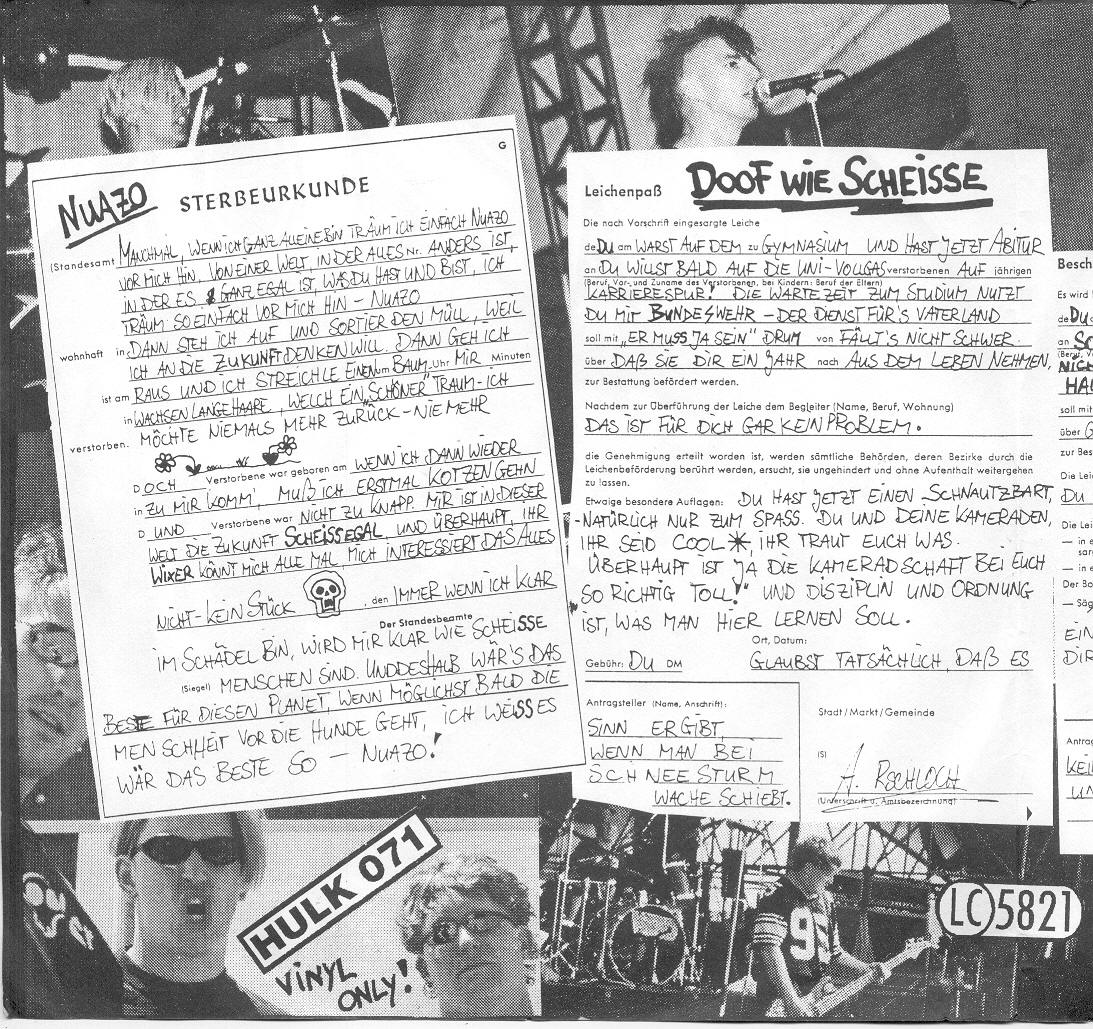 G
NUAZO STERBEURKUNDE
(Standesamt MANCHMAL, WENN ICH GANZ ALLEINE BIN TRÄUM ICH EINFACH NUAZO
VOR MICH HIN, VON EINER WELT, IN DER ALLES Nr. ANDERS IST,
IN DER ES GANZ EGAL IST, WAS DU HAST UND BIST, ICH
TRÄUM SO EINFACH VOR MICH HIN – NUAZO
wohnhaft in DANN STEH ICH AUF UND SORTIER DEN MÜLL, WEIL
ICH AN DIE ZUKUNFT DENKEN WILL. DANN GEH ICH
ist am RAUS UND ICH STREICHLE EINEN um BAUM. Uhr MIR Minuten
in WACHSEN LANGE HAARE, WELCH EIN „SCHÖNER“ TRAUM – ICH
verstorben. MÖCHTE NIEMALS MEHR ZURÜCK – NIE MEHR
D OCH Verstorbene war geboren am WENN ICH DANN WIEDER
in ZU MIR KOMM', MUß ICH ERSTMAL KOTZEN GEHN
D UND Verstorbene war NICHT ZU KNAPP. MIR IST IN DIESER
WELT DIE ZUKUNFT SCHEISSEGAL UND ÜBERHAUPT, IHR
WIXER KÖNNT MICH ALLE MAL, MICH INTERESSIERT DAS ALLES
NICHT – KEIN STÜCK , den IMMER WENN ICH KLAR
Der Standesbeamte
IM SCHÄDEL BIN, WIRD MIR KLAR WIE SCHEISSE
(Siegel) MENSCHEN SIND. UND DESHALB WÄR'S DAS
BESTE FÜR DIESEN PLANET, WENN MÖGLICHST BALD DIE
MENSCHHEIT VOR DIE HUNDE GEHT, ICH WEISS ES
WÄR DAS BESTE SO – NUAZO!
Leichenpaß DOOF WIE SCHEISSE
Die nach Vorschrift eingesargte Leiche
de DU am WARST AUF DEM zu GYMNASIUM UND HAST JETZT ABITUR
an DU WILLST BALD AUF DIE UNI-VOLLGAS verstorbenen AUF jährigen
(Beruf, Vor- und Zuname des Verstorbenen, bei Kindern: Beruf der Eltern)
KARRIERESPUR! DIE WARTEZEIT ZUM STUDIUM NUTZT
DU MIT BUNDESWEHR – DER DIENST FÜR'S VATERLAND
soll mit „ER MUSS JA SEIN“ DRUM von FÄLLT'S NICHT SCHWER.
über DAß SIE DIR EIN JAHR nach AUS DEM LEBEN NEHMEN,
zur Bestattung befördert werden.
Nachdem zur Überführung der Leiche dem Begleiter (Name, Beruf, Wohnung)
DAS IST FÜR DICH GAR KEIN PROBLEM.
die Genehmigung erteilt worden ist, werden sämtliche Behörden, deren Bezirke durch die
Leichenbeförderung berührt werden, ersucht, sie ungehindert und ohne Aufenthalt weitergehen
zu lassen.
Etwaige besondere Auflagen: DU HAST JETZT EINEN SCHNAUTZBART,
-NATÜRLICH NUR ZUM SPASS. DU UND DEINE KAMERADEN,
IHR SEID COOL * IHR TRAUT EUCH WAS.
ÜBERHAUPT IST JA DIE KAMERADSCHAFT BEI EUCH
SO RICHTIG TOLL!“ UND DISZIPLIN UND ORDNUNG
IST, WAS MAN HIER LERNEN SOLL.
Ort, Datum:
Gebühr: DU DM GLAUBST TATSÄCHLICH, DAß ES
Antragsteller (Name, Anschrift):
SINN ERGIBT,
WENN MAN BEI
SCHNEESTURM
WACHE SCHIEBT.
Stadt/Markt/Gemeinde
(S)
A. RSCHLOCH
(Unterschrift u. Amtsbezeichnung)
Besch
Es wird
de DU
an
NIC
HA
soll mit
über G
zur Bes
Die Lei
DU
Die Lei
— in e
sar
— in e
Der Bo
— Säg
EIN
DIR
Antrag
KEI
UN
HULK 071
VINYL
ONLY!
9
LC 5821